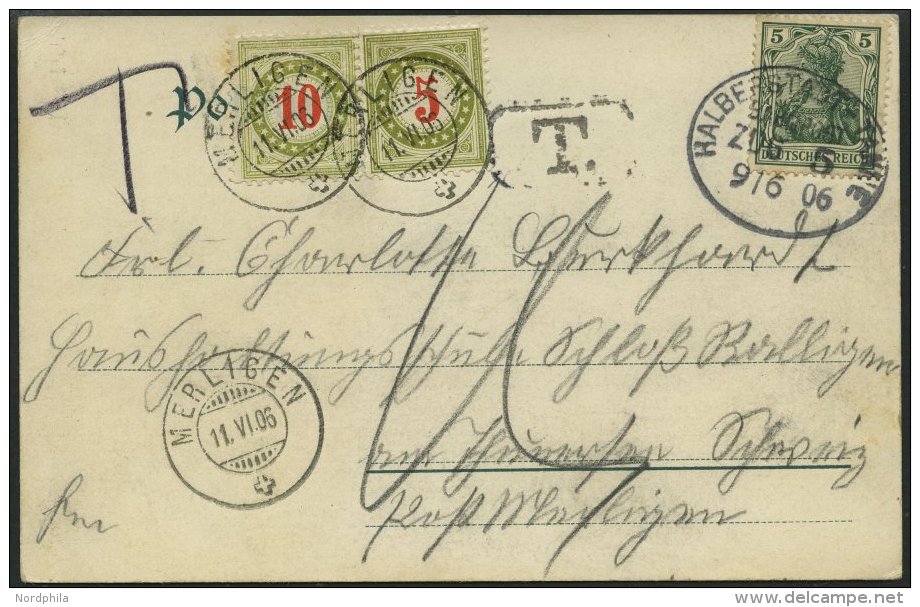 T
Po
10
5
MERLIGEN
11.VI.06
MERLIGEN
11.VI.06
T.
5 5
DEUTSCHES REICH
HALBERSTADT
ZUG 6
9/6 06
Frl. Charlotte Burkhardt
Haushaltungsschule Schloß Ralligen
am Thunersee Schweiz
Post Merligen
MERLIGEN
11.VI.06
© Nordphila
delcampe.net